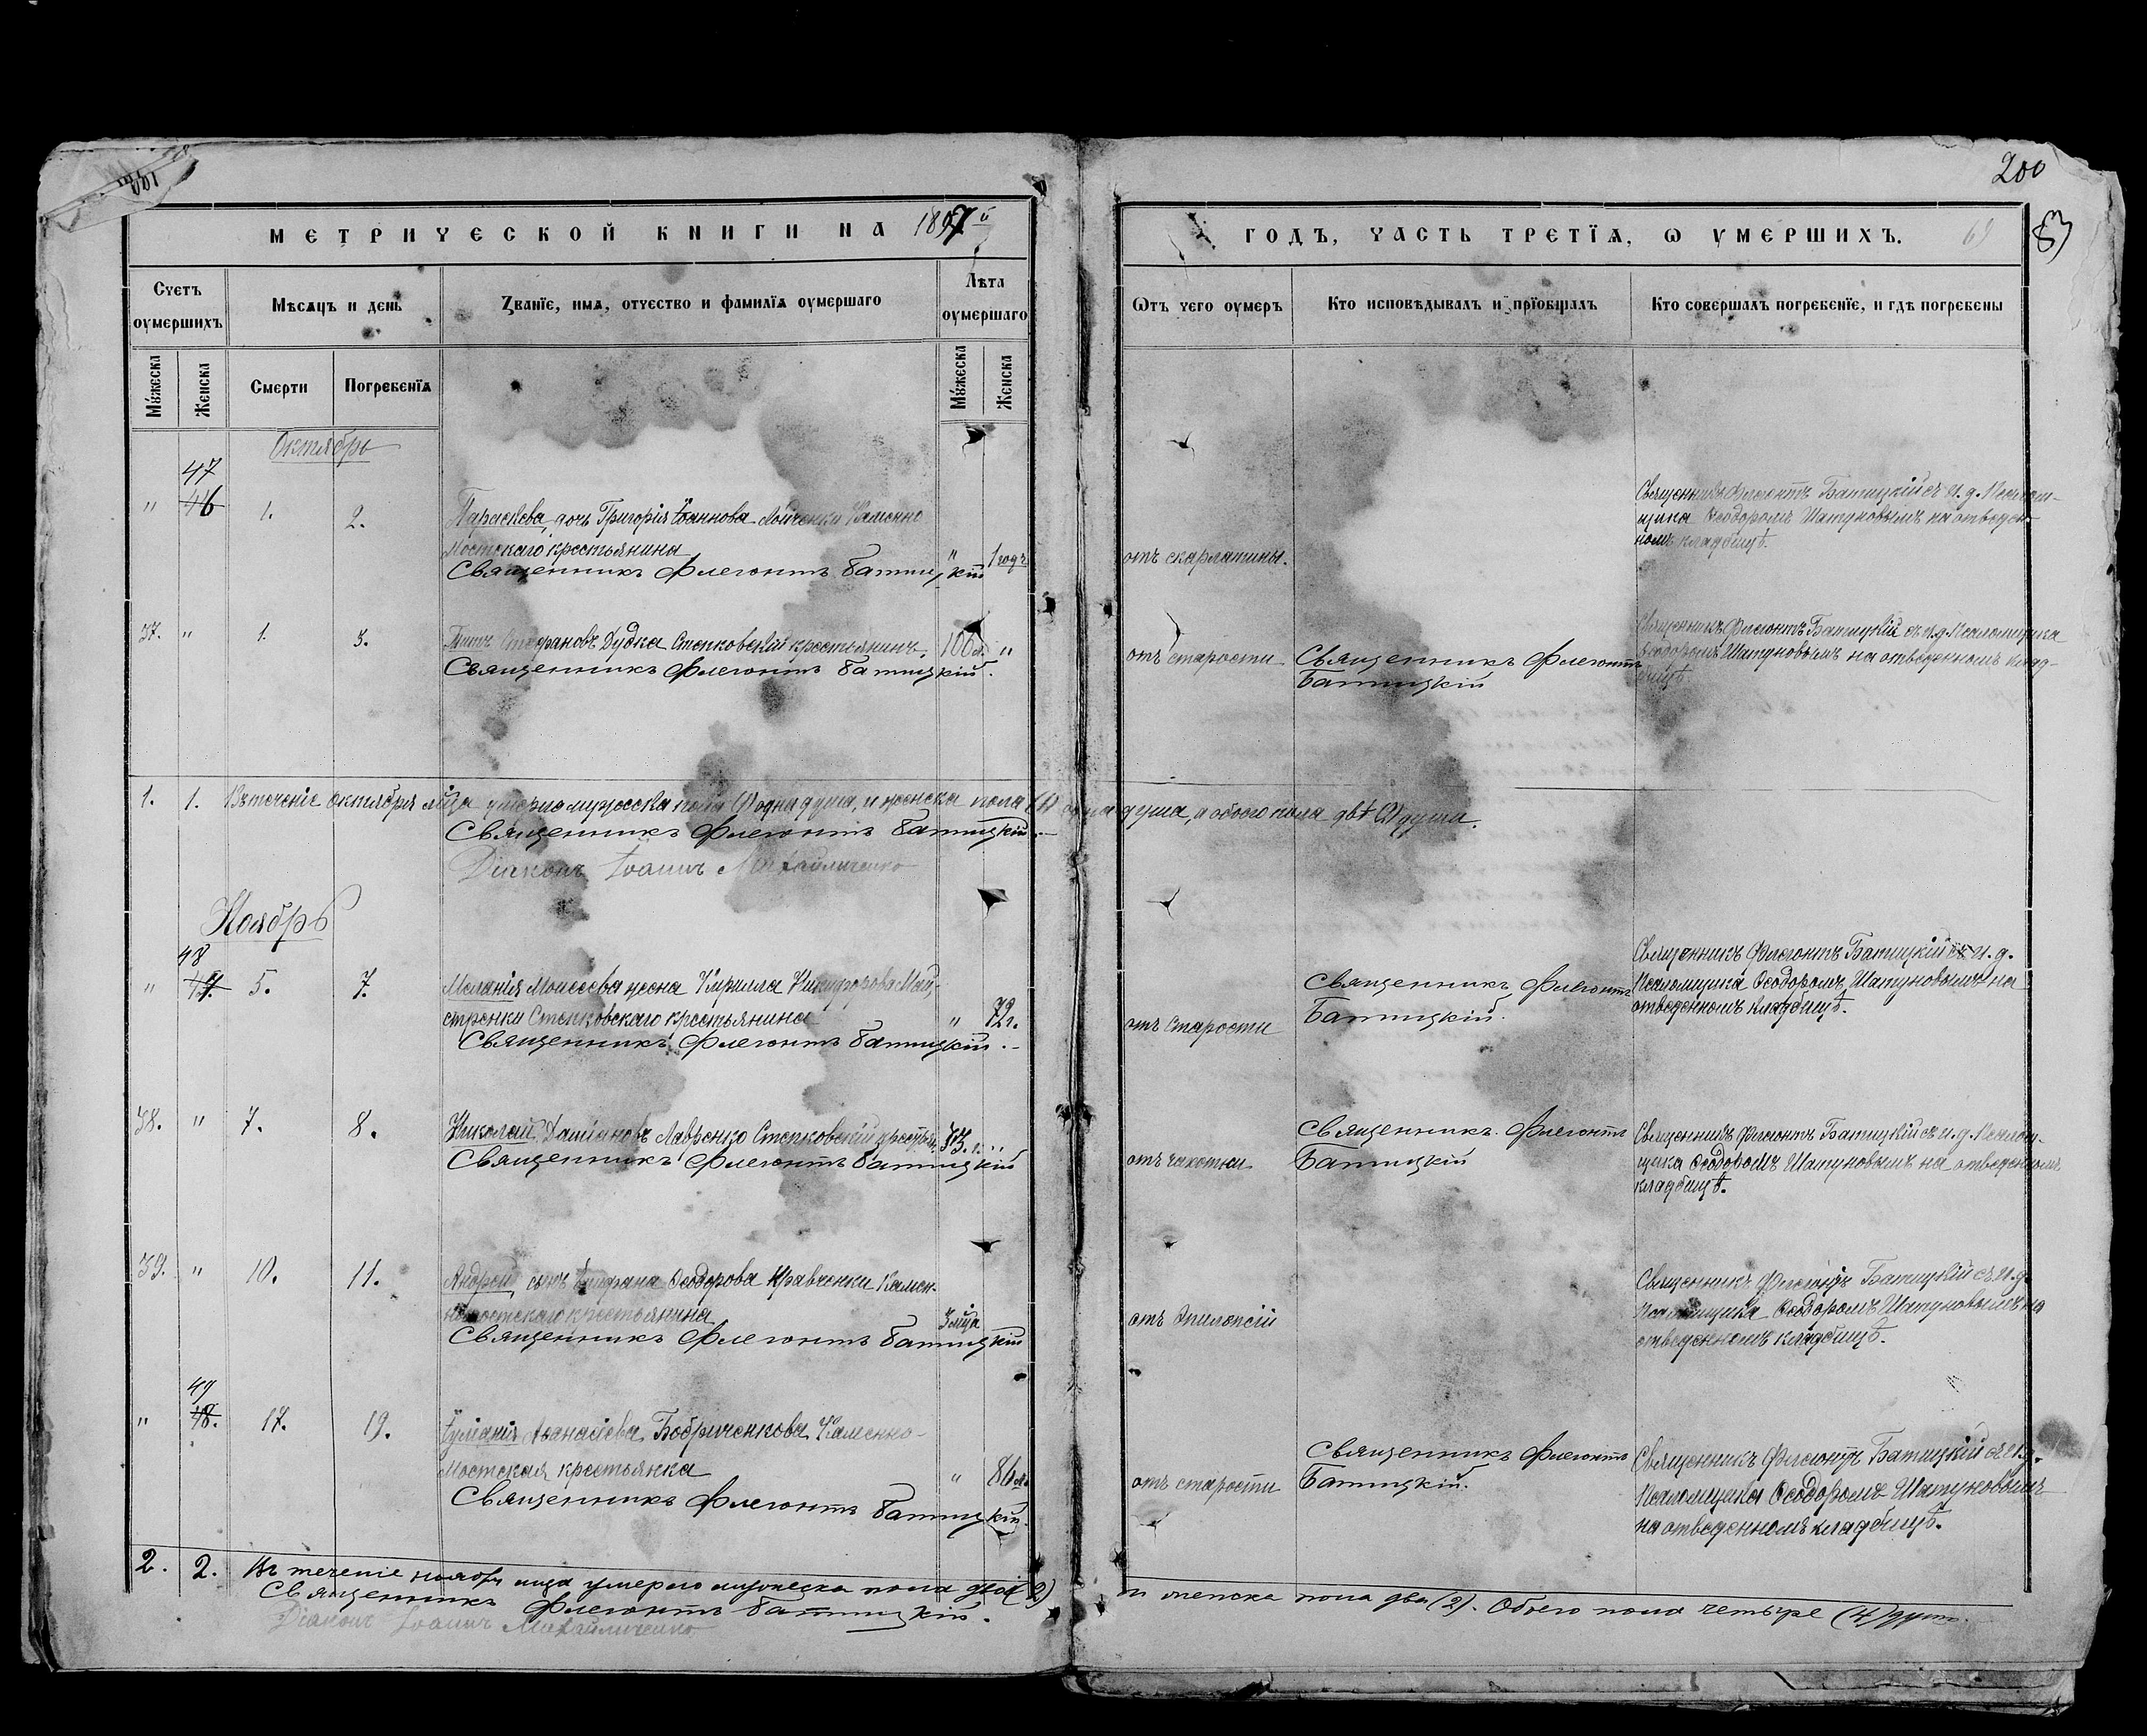 200
МЕТРИЧЕСКОЙ КНИГИ НА 1897й
ГОДЪ, ЧАСТЬ ТРЕТЇѦ, Ѡ ОУМЕРШИХЪ.
69
Счетъ оумершихъ
Мѣсѧцъ и день
Званїе, имѧ, отчество и фамилїѧ оумершаго
Лѣта оумершаго
Ѿтъ чего оумеръ
Кто исповѣдывалъ и прїобщалъ
Кто совершалъ погребенїе, и гдѣ погребены
Мꙋжеска
Женска
Смерти
Погребенїѧ
Мꙋжеска
Женска
Октябрь
47
" 46 1. 2.
Параскева, дочь Григорія Іоаннова Лойченки Каменно
Мостскаго крестьянина " 1 годъ
Священникъ Флегонтъ Батицкій
отъ скарлатины.
Священникъ Флегонтъ Батицкій съ и. д. Псалом-
щика Ѳеодоромъ Шатуновымъ на отведен-
номъ кладбищѣ.
37. " 1. 3.
Титъ Стефановъ Дудка Степковскій крестьянинъ, 100 л. "
Священникъ Флегонтъ Батицкій.
отъ старости
Священникъ Флегонтъ
Батицкій
Священникъ Флегонтъ Батицкій съ и. д. Псаломщика
Ѳеодоромъ Шатуновымъ на отведенномъ клад-
бищѣ.
1. 1. Въ теченіе октября мѣца умерло мужеска пола (1) одна душа, и женска пола (1) одна душа, а обоего пола двѣ (2) души.
Священникъ Флегонтъ Батицкій.
Діаконъ Іоаннъ Михайличенко
Ноябрь
48
" 47. 5. 7.
Меланія Моисеева жена Кирилла Никифорова Май-
стренки Степковскаго крестьянина " 72 г.
Священникъ Флегонтъ Батицкій.
отъ старости
Священникъ Флегонтъ
Батицкій.
Священникъ Флегонтъ Батицкій съ и. д.
Псаломщика Ѳеодоромъ Шатуновымъ на
отведенномъ кладбищѣ.
38. " 7. 8.
Николай Даміановъ Лавренко Степковскій крестьян. "
Священникъ Флегонтъ Батицкій
отъ чахотки
Священникъ Флегонтъ
Батицкій
Священникъ Флегонтъ Батицкій съ и. д. Псалом-
щика Ѳеодоромъ Шатуновымъ на отведенномъ
кладбищѣ.
39. " 10. 11.
Андрей, сынъ Ѳеодорова Кравченки Камен-
номостскаго крестьянина 3 мѣца
Священникъ Флегонтъ Батицкій
отъ эпилепсіи
Священникъ Флегонтъ Батицкій съ и. д.
Псаломщика Ѳеодоромъ Шатуновымъ на
отведенномъ кладбищѣ.
49
" 48. 17. 19.
Іуліанія Аѳанасіева Бобриченкова Каменно-
Мостская крестьянка " 86 л.
Священникъ Флегонтъ Батицкій.
отъ старости
Священникъ Флегонтъ
Батицкій.
Священникъ Флегонтъ Батицкій съ и. д.
Псаломщика Ѳеодоромъ Шатуновымъ
на отведенномъ кладбищѣ.
2. 2. Въ теченіе ноября мѣца умерло мужеска пола двое (2) и женска пола два (2). Обоего пола четыре (4) душъ.
Священникъ Флегонтъ Батицкій.
Діаконъ Іоаннъ Михайличенко